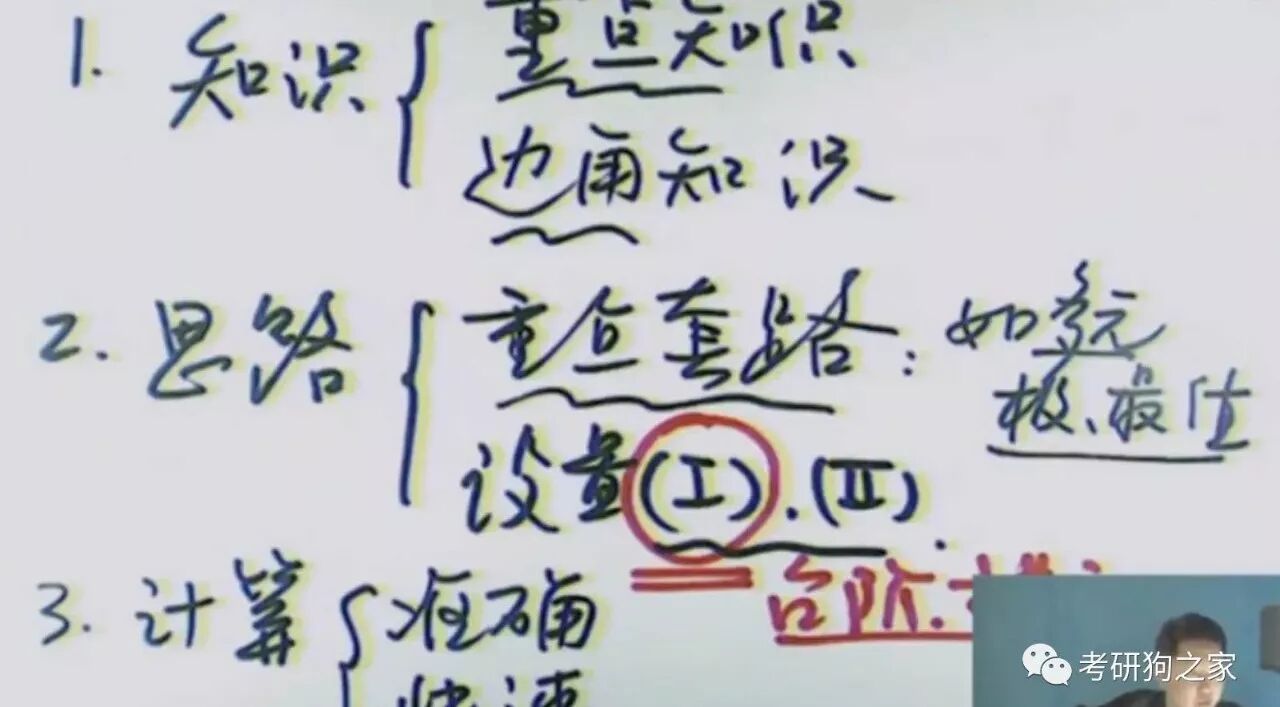 1. 知识
重点知识
边角知识
2. 思路
重点套路：如多元
极、最值
设置(Ⅰ).(Ⅱ).
台阶.
3. 计算
准确
快速
考研狗之家